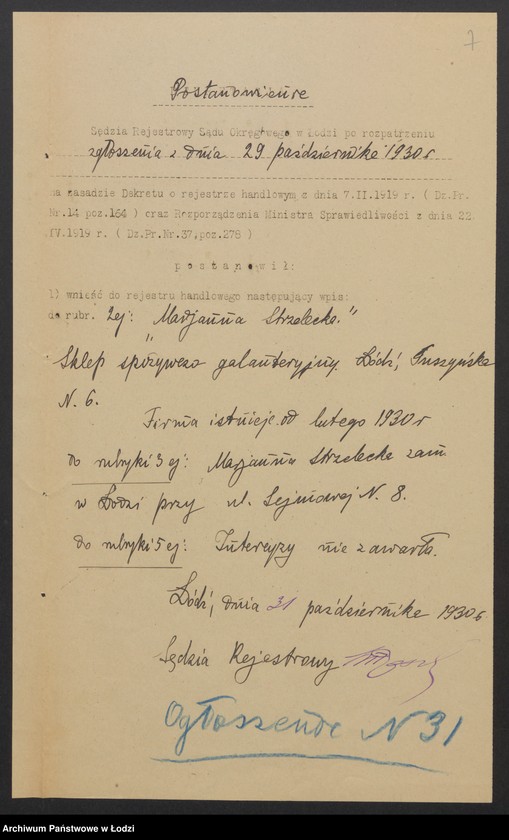 7
Postanowienie
Sędzia Rejestrowy Sądu Okręgowego w Łodzi po rozpatrzeniu
zgłoszenia z dnia 29 października 1930 r
na zasadzie Dekretu o rejestrze handlowym z dnia 7.II.1919 r. ( Dz.Pr.
Nr.14 poz.164 ) oraz Rozporządzenia Ministra Sprawiedliwości z dnia 22
IV.1919 r. ( Dz.Pr.Nr.37,poz.278 )
p o s t a n o w i ł :
1) wnieść do rejestru handlowego następujący wpis:
do rubr. 2ej: "Marjanna Strzelecka."
Sklep spożywczo galanteryjny. Łódź, Tuszyńska
N. 6.
Firma istnieje od lutego 1930 r
do rubryki 3 ej: Marjanna Strzelecka zam
w Łodzi przy ul. Sejmowej N. 8.
do rubryki 5 ej: Intercyzy nie zawarła.
Łódź, dnia 31 października 1930 r.
Sędzia Rejestrowy
Ogłoszenie N 31
Archiwum Państwowe w Łodzi